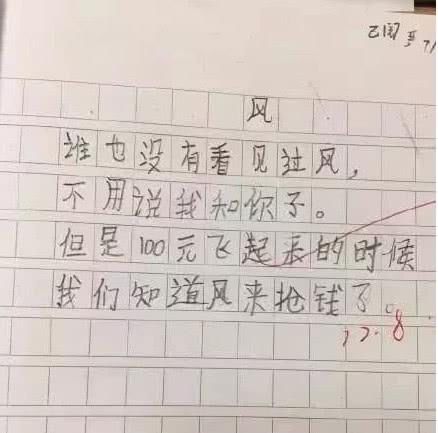 风
谁也没有看见过风，
不用说我和你了。
但是100元飞起来的时候
我们知道风来抢钱了。
12.8